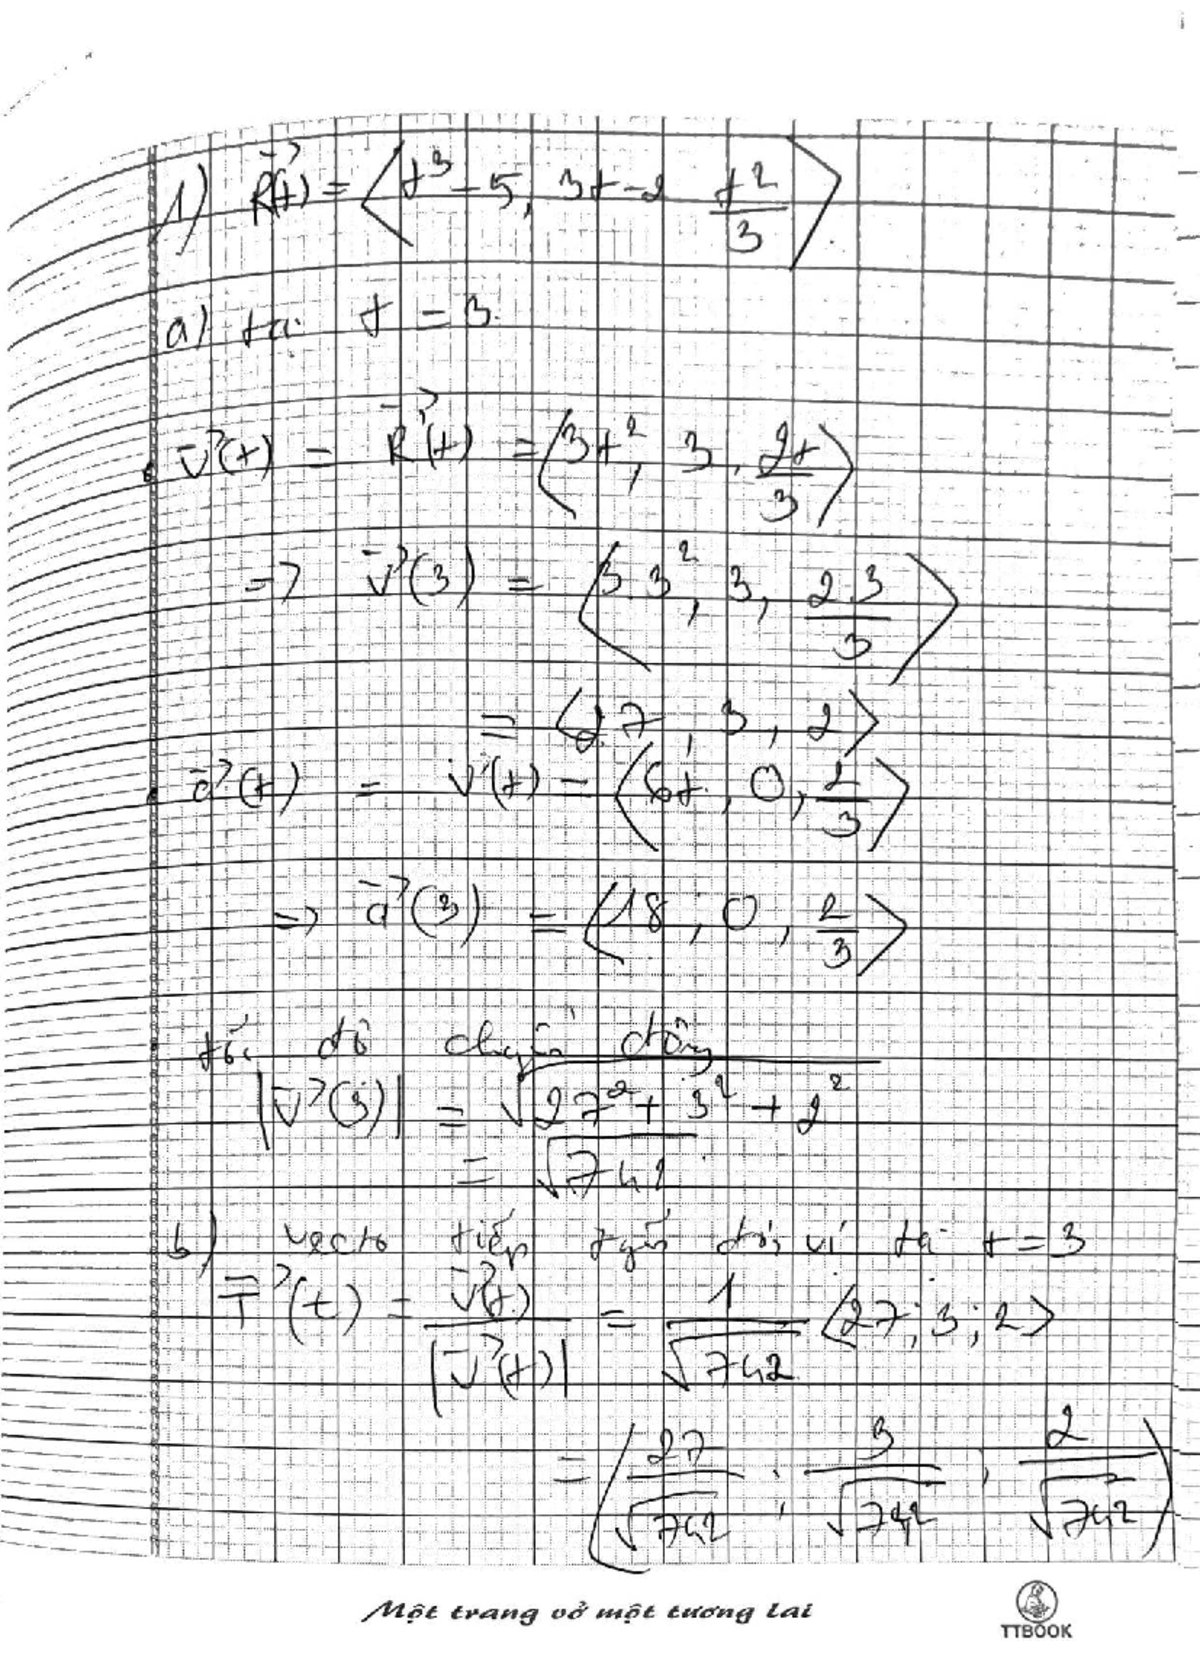 1) R⃗(t) = ⟨t³ - 5, 3t - 2 t²/3⟩
a) tại t = 3
v⃗(t) = R⃗'(t) = ⟨3t², 3, 2t/3⟩
=> v⃗(3) = ⟨3.3², 3, 2.3/3⟩
= ⟨27, 3, 2⟩
a⃗(t) = v⃗'(t) = ⟨6t, 0, 2/3⟩
=> a⃗(3) = ⟨18, 0, 2/3⟩
tốc độ chuyển động
|v⃗(3)| = √(27² + 3² + 2²)
= √742
b) vectơ tiếp tuyến đơn vị tại t = 3
T⃗(t) = v⃗(t)/|v⃗(t)| = 1/√742 ⟨27; 3; 2⟩
= (27/√742 ; 3/√742 , 2/√742)
Một trang vở một tương lai
TTBOOK